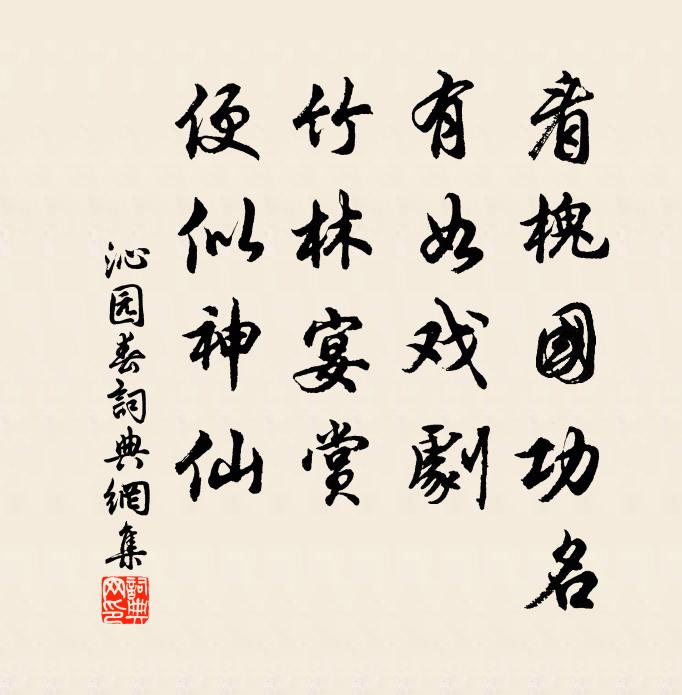 看槐國功名
有如戏劇
竹林宴赏
便似神仙
沁园春詞典網集
詞典网印